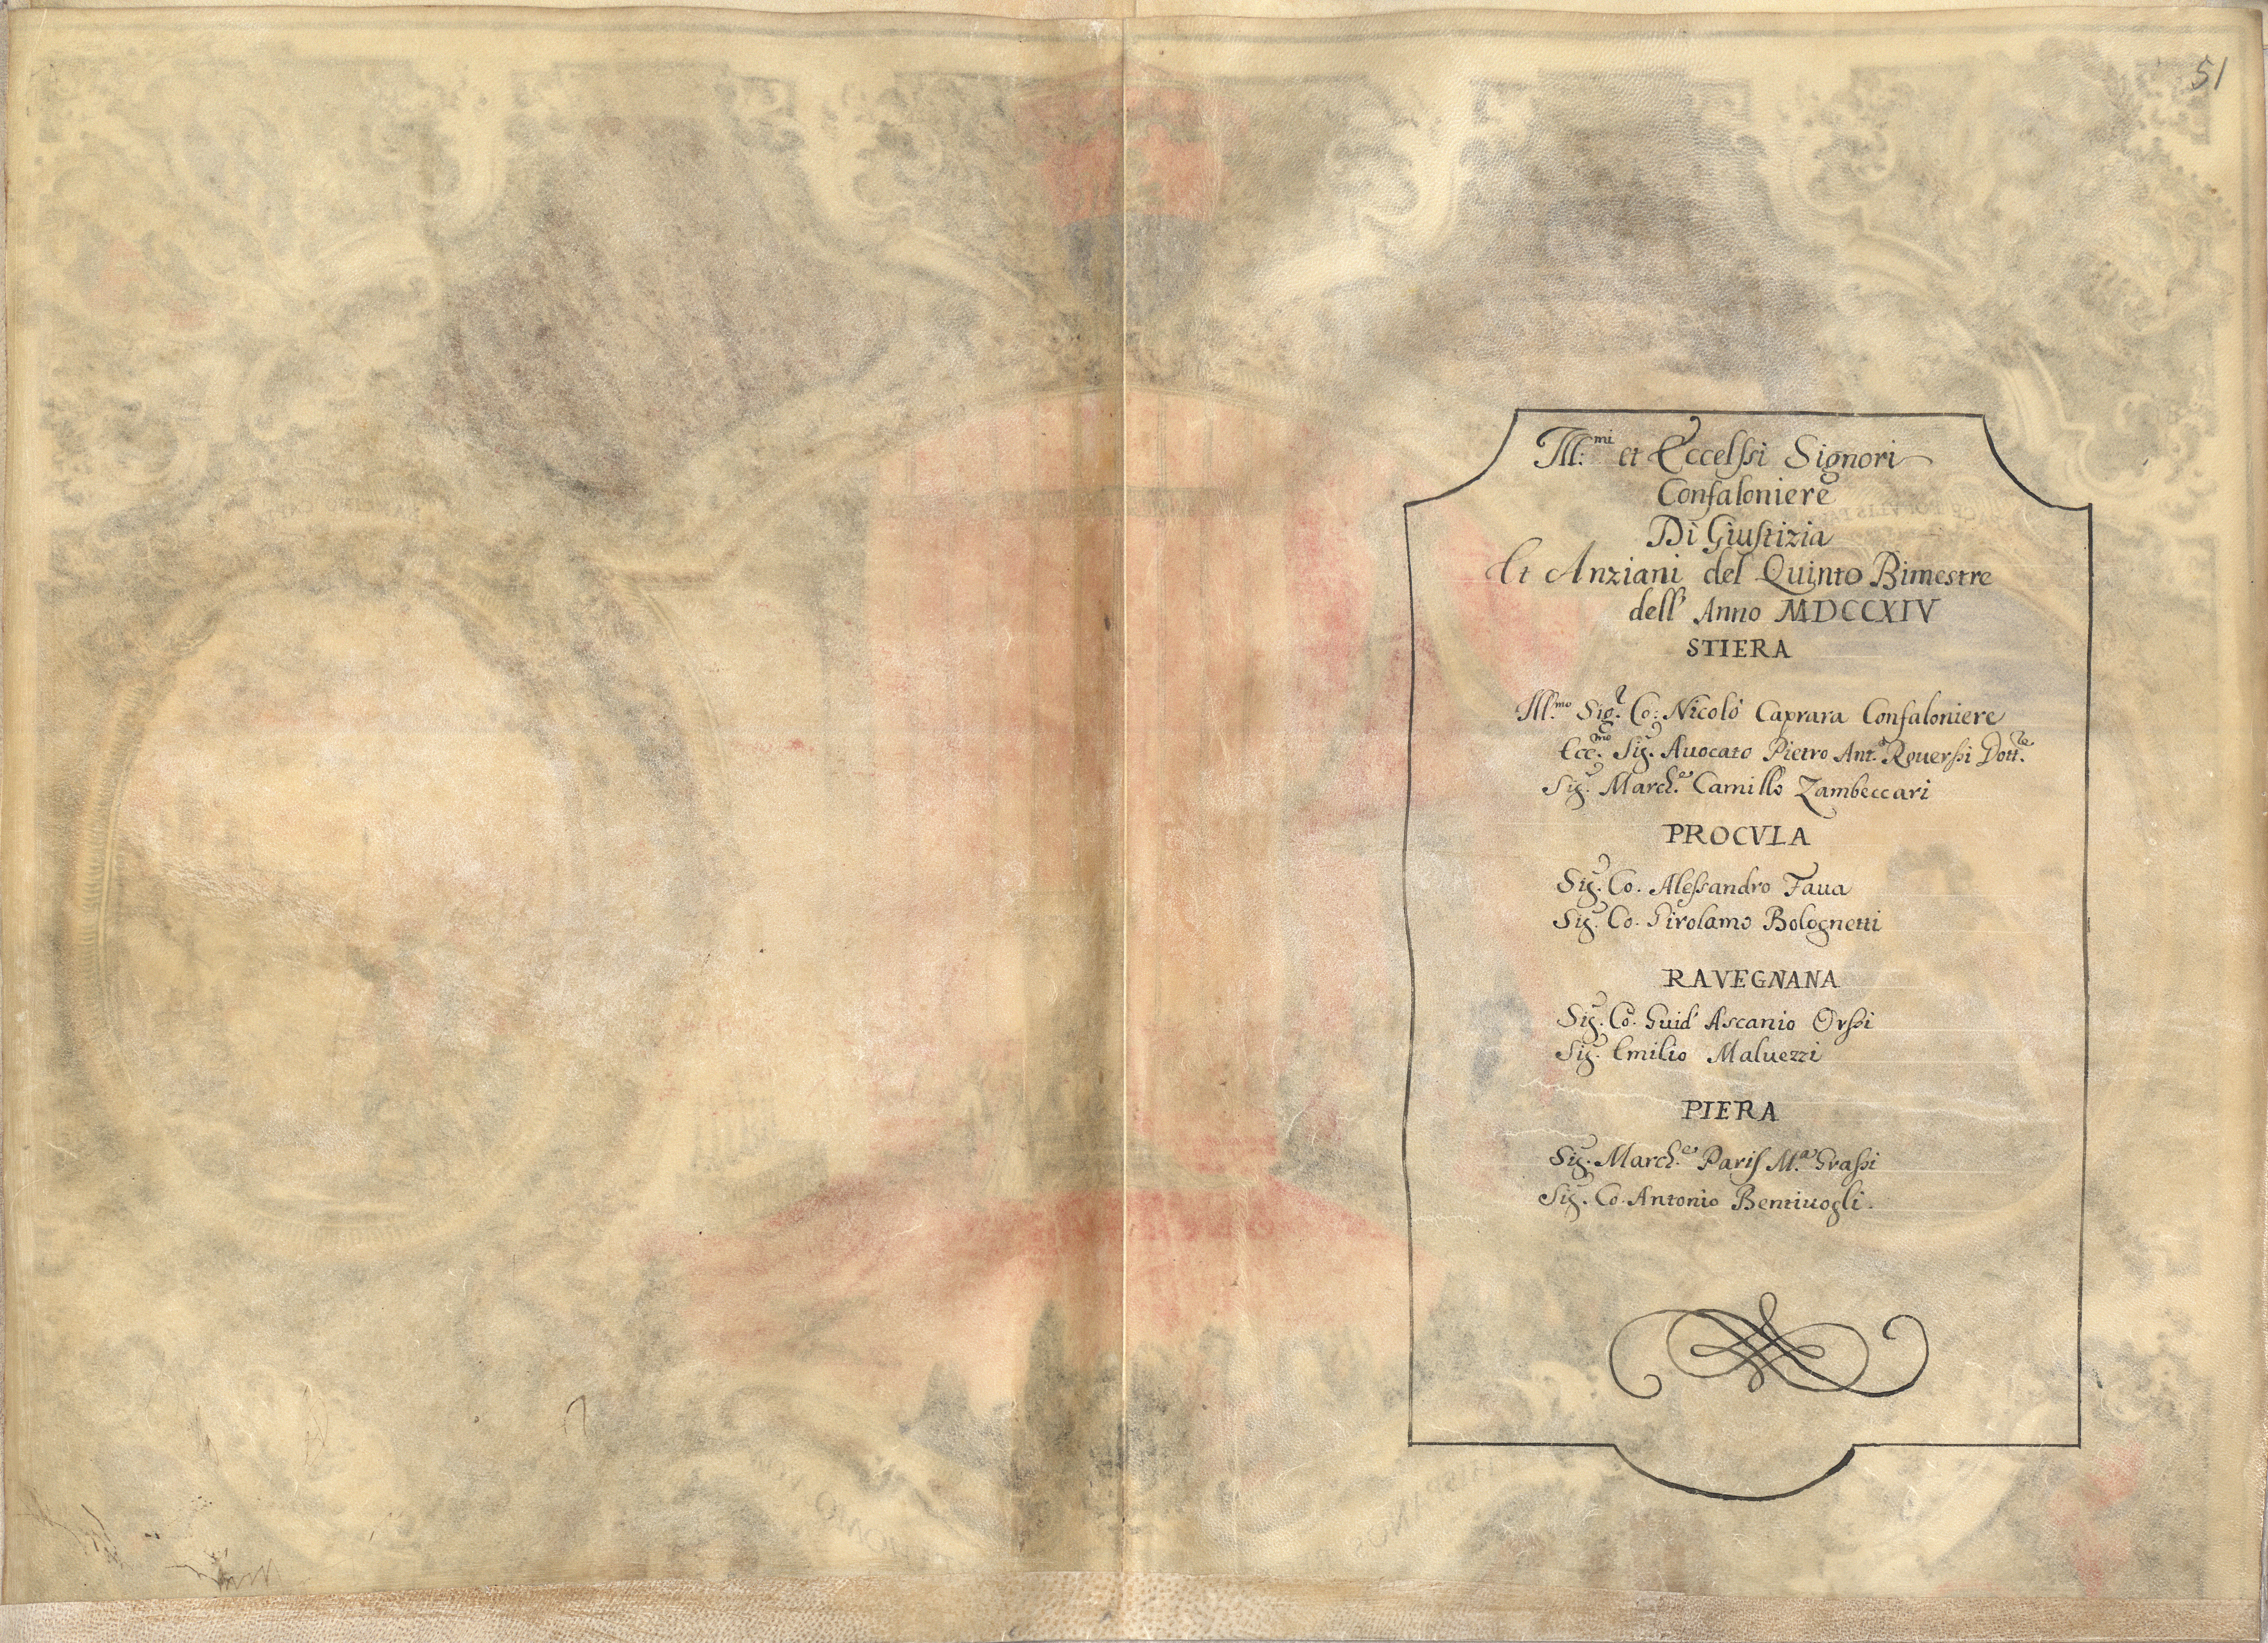 51
Ill:mi et Eccelsi Signori
Confaloniere
Di Giustizia
Et Anziani del Quinto Bimestre
dell' Anno MDCCXIV
STIERA
Ill.mo Sig.r Co: Nicolò Caprara Confaloniere
Ecc.mo Sig. Auocato Pietro Ant.o Rouersi Dott.re
Sig. March.e Camillo Zambeccari
PROCVLA
Sig. Co. Alessandro Faua
Sig. Co. Girolamo Bolognetti
RAVEGNANA
Sig. Co. Guid' Ascanio Orsi
Sig. Emilio Maluezzi
PIERA
Sig. March.e Paris M.a Grassi
Sig. Co. Antonio Bentiuogli.